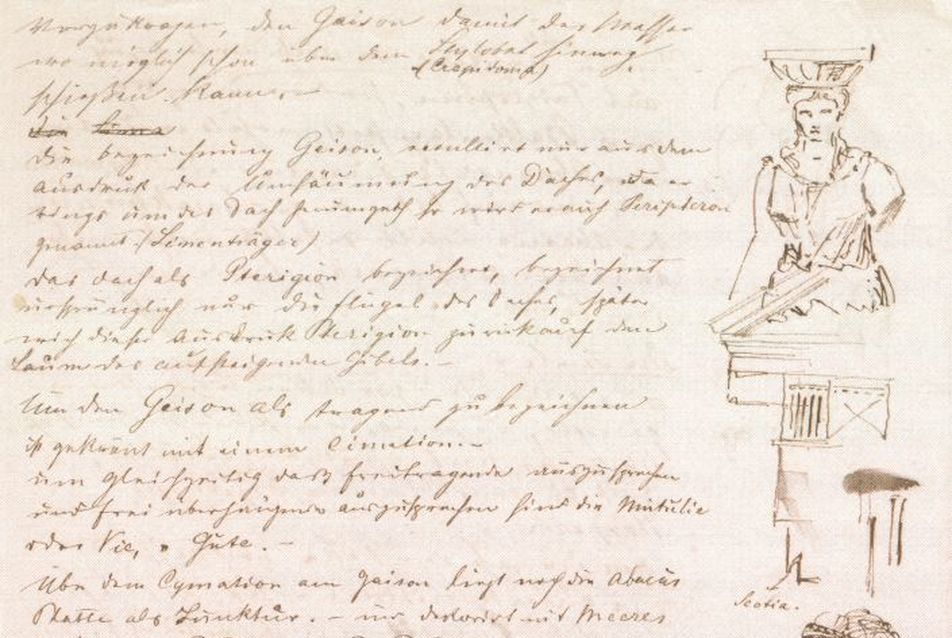 vorzukragen, den Geison damit das Wasser
wo möglich schon über den Stylobat hinweg
(Crepidoma)
schießen kann. –
die Sima
die bezeichnung Geison, resultiert nur aus dem
ausdruk der Umsäumung des Daches, da er
rings um das Dach herumgeht so wird er auch Peripteron
genannt (Simenträger)
das dach als Pterigion bezeichnet, bezeichnet
ursprünglich nur die flügel des Daches, später
wird dieser Ausdruk Pterigion zurück auf den
Saum des aufsteigenden Gibels. –
Um den Geison als tragend zu bezeichnen
ist gekrönt mit einem Cimation. –
um gleichzeitig das freitragende auszusprechen
und frei überhängende auszusprechen sind die Mutulie
oder Vie, Gute. –
Über dem Cymation am Geison liegt noch die Abacus
Platte als Junktur. – nur dekoriert mit Meeres
Scotia.